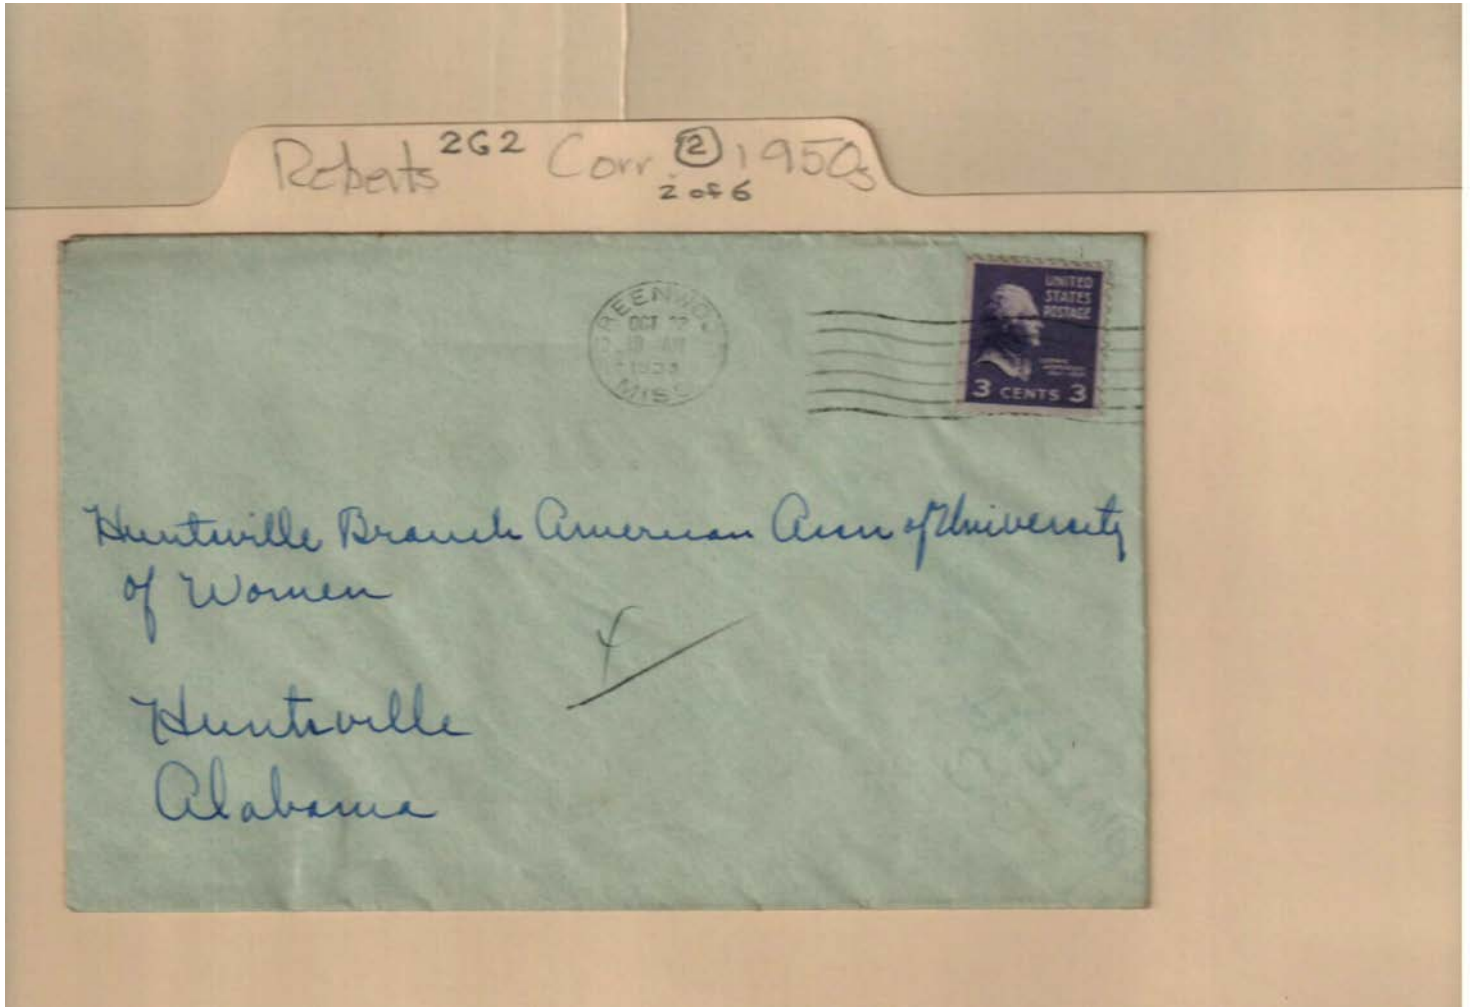 Roberts 2G2 Corr. ② 1950s
2 of 6
GREENWOOD
OCT 22
10 AM
MISS
UNITED
STATES
POSTAGE
3 CENTS 3
Huntsville Branch American Assn of University
of Women
4
Huntsville
Alabama